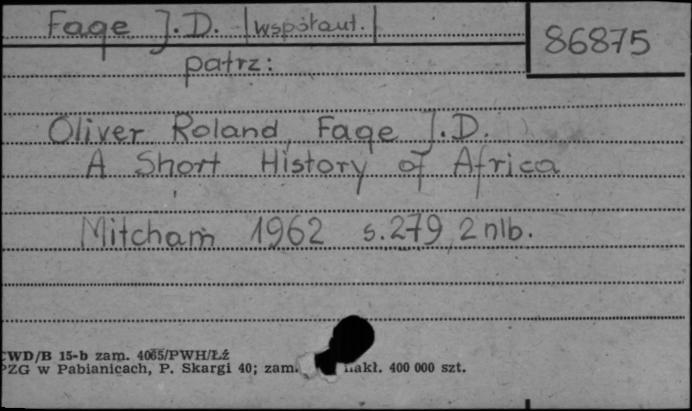 Fage J.D. |współaut.|
86875
patrz:
Oliver Roland, Fage J.D.
A Short History of Africa
Mitcham 1962 s.279, 2 nlb.
CWD/B 15-b zam. 4065/PWH/Łź
PZG w Pabianicach, P. Skargi 40; zam. nakł. 400 000 szt.